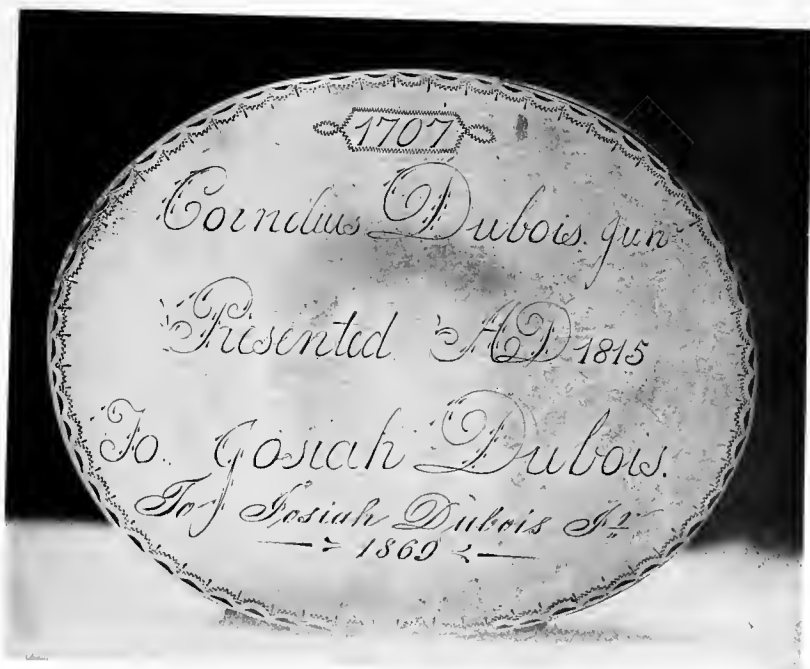 1707
Cornelius Dubois. Jun
Presented AD 1815
To. Josiah Dubois.
To Josiah Dubois Jr
1869